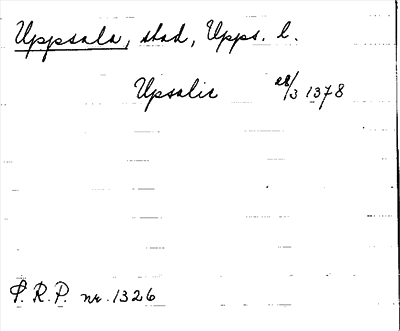 Uppsala, stad, Upps. l.
Upsalie 28/3 1378
S.R.P. nr. 1326